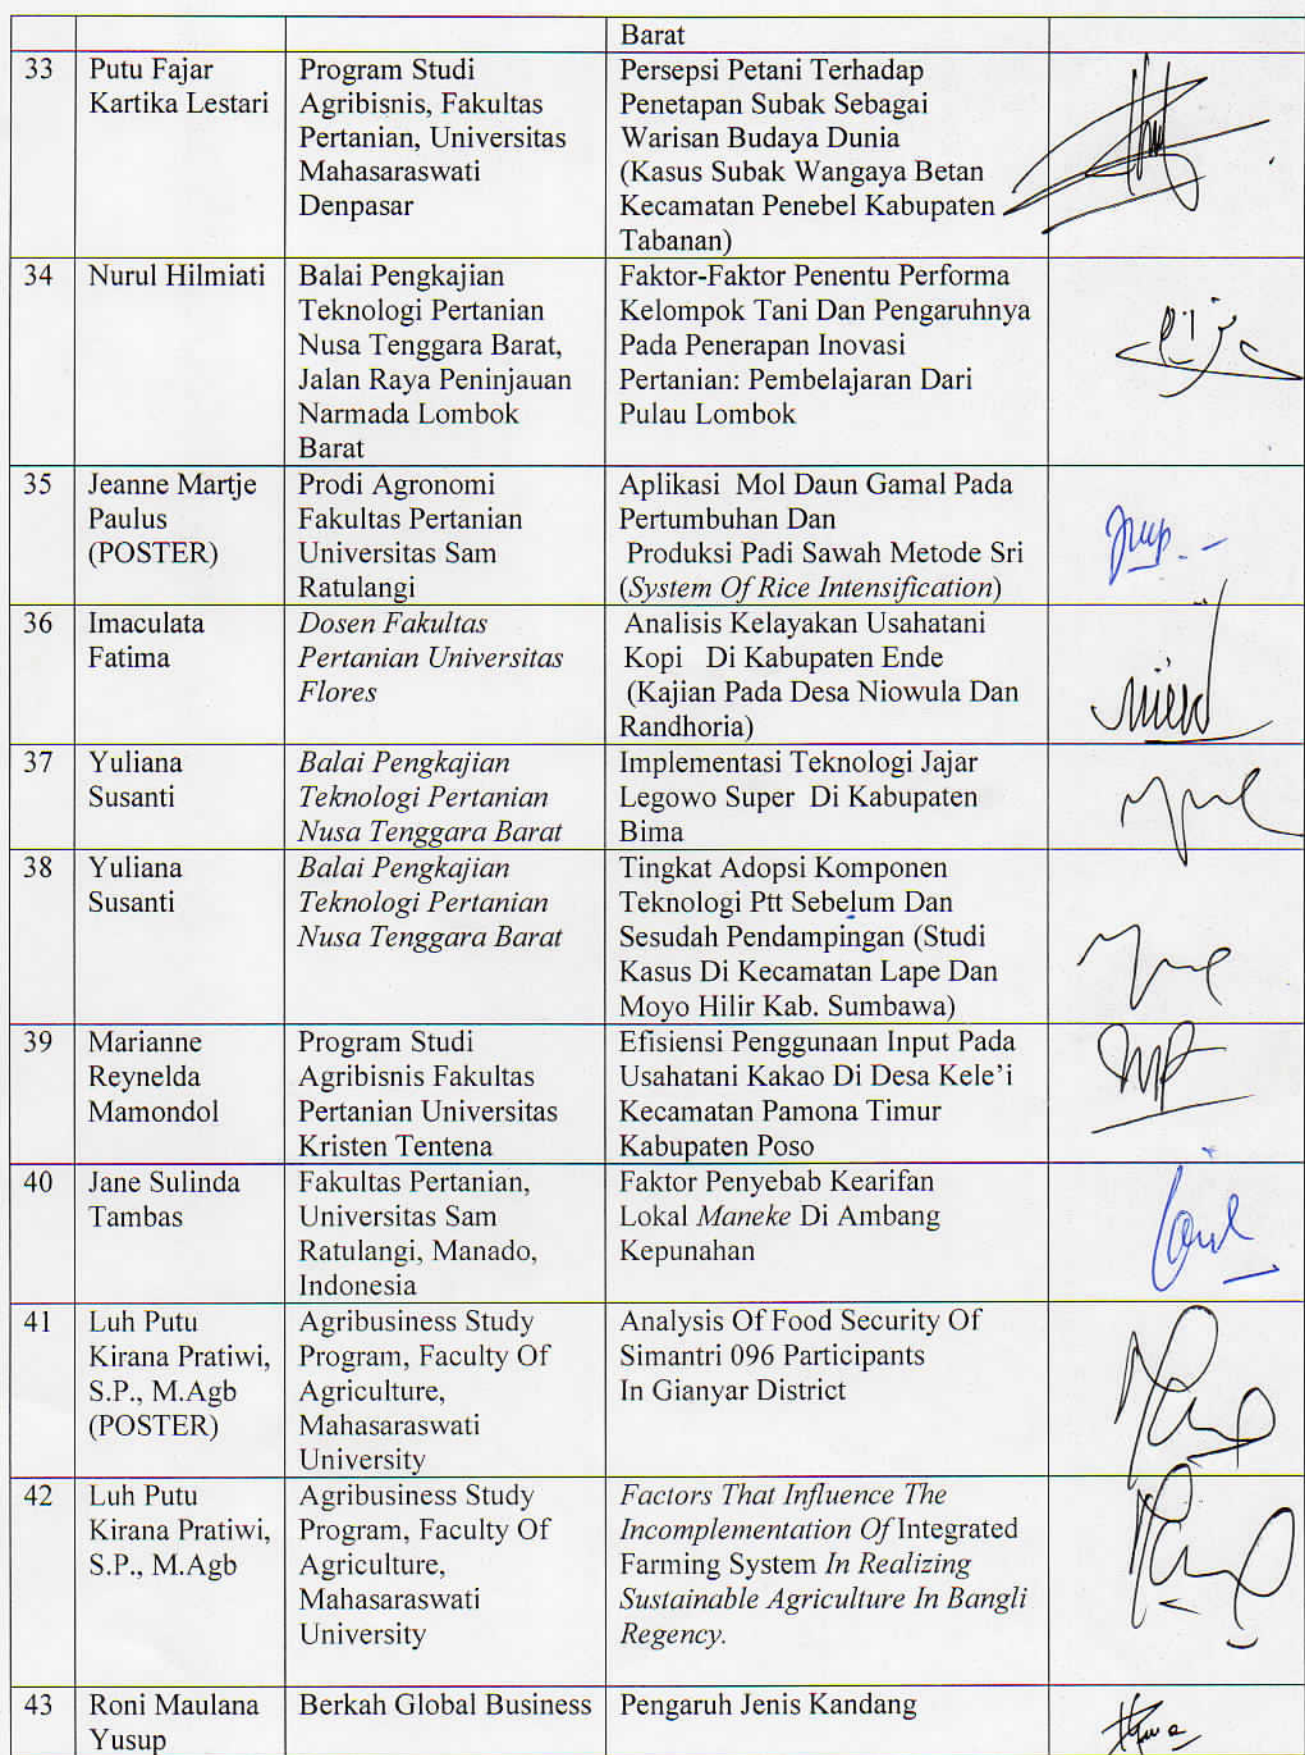 Barat
33
Putu Fajar
Kartika Lestari
Program Studi
Agribisnis, Fakultas
Pertanian, Universitas
Mahasaraswati
Denpasar
Persepsi Petani Terhadap
Penetapan Subak Sebagai
Warisan Budaya Dunia
(Kasus Subak Wangaya Betan
Kecamatan Penebel Kabupaten
Tabanan)
34
Nurul Hilmiati
Balai Pengkajian
Teknologi Pertanian
Nusa Tenggara Barat,
Jalan Raya Peninjauan
Narmada Lombok
Barat
Faktor-Faktor Penentu Performa
Kelompok Tani Dan Pengaruhnya
Pada Penerapan Inovasi
Pertanian: Pembelajaran Dari
Pulau Lombok
35
Jeanne Martje
Paulus
(POSTER)
Prodi Agronomi
Fakultas Pertanian
Universitas Sam
Ratulangi
Aplikasi Mol Daun Gamal Pada
Pertumbuhan Dan
Produksi Padi Sawah Metode Sri
(System Of Rice Intensification)
36
Imaculata
Fatima
Dosen Fakultas
Pertanian Universitas
Flores
Analisis Kelayakan Usahatani
Kopi Di Kabupaten Ende
(Kajian Pada Desa Niowula Dan
Randhoria)
37
Yuliana
Susanti
Balai Pengkajian
Teknologi Pertanian
Nusa Tenggara Barat
Implementasi Teknologi Jajar
Legowo Super Di Kabupaten
Bima
38
Yuliana
Susanti
Balai Pengkajian
Teknologi Pertanian
Nusa Tenggara Barat
Tingkat Adopsi Komponen
Teknologi Ptt Sebelum Dan
Sesudah Pendampingan (Studi
Kasus Di Kecamatan Lape Dan
Moyo Hilir Kab. Sumbawa)
39
Marianne
Reynelda
Mamondol
Program Studi
Agribisnis Fakultas
Pertanian Universitas
Kristen Tentena
Efisiensi Penggunaan Input Pada
Usahatani Kakao Di Desa Kele’i
Kecamatan Pamona Timur
Kabupaten Poso
40
Jane Sulinda
Tambas
Fakultas Pertanian,
Universitas Sam
Ratulangi, Manado,
Indonesia
Faktor Penyebab Kearifan
Lokal Maneke Di Ambang
Kepunahan
41
Luh Putu
Kirana Pratiwi,
S.P., M.Agb
(POSTER)
Agribusiness Study
Program, Faculty Of
Agriculture,
Mahasaraswati
University
Analysis Of Food Security Of
Simantri 096 Participants
In Gianyar District
42
Luh Putu
Kirana Pratiwi,
S.P., M.Agb
Agribusiness Study
Program, Faculty Of
Agriculture,
Mahasaraswati
University
Factors That Influence The
Incomplementation Of Integrated
Farming System In Realizing
Sustainable Agriculture In Bangli
Regency.
43
Roni Maulana
Yusup
Berkah Global Business
Pengaruh Jenis Kandang